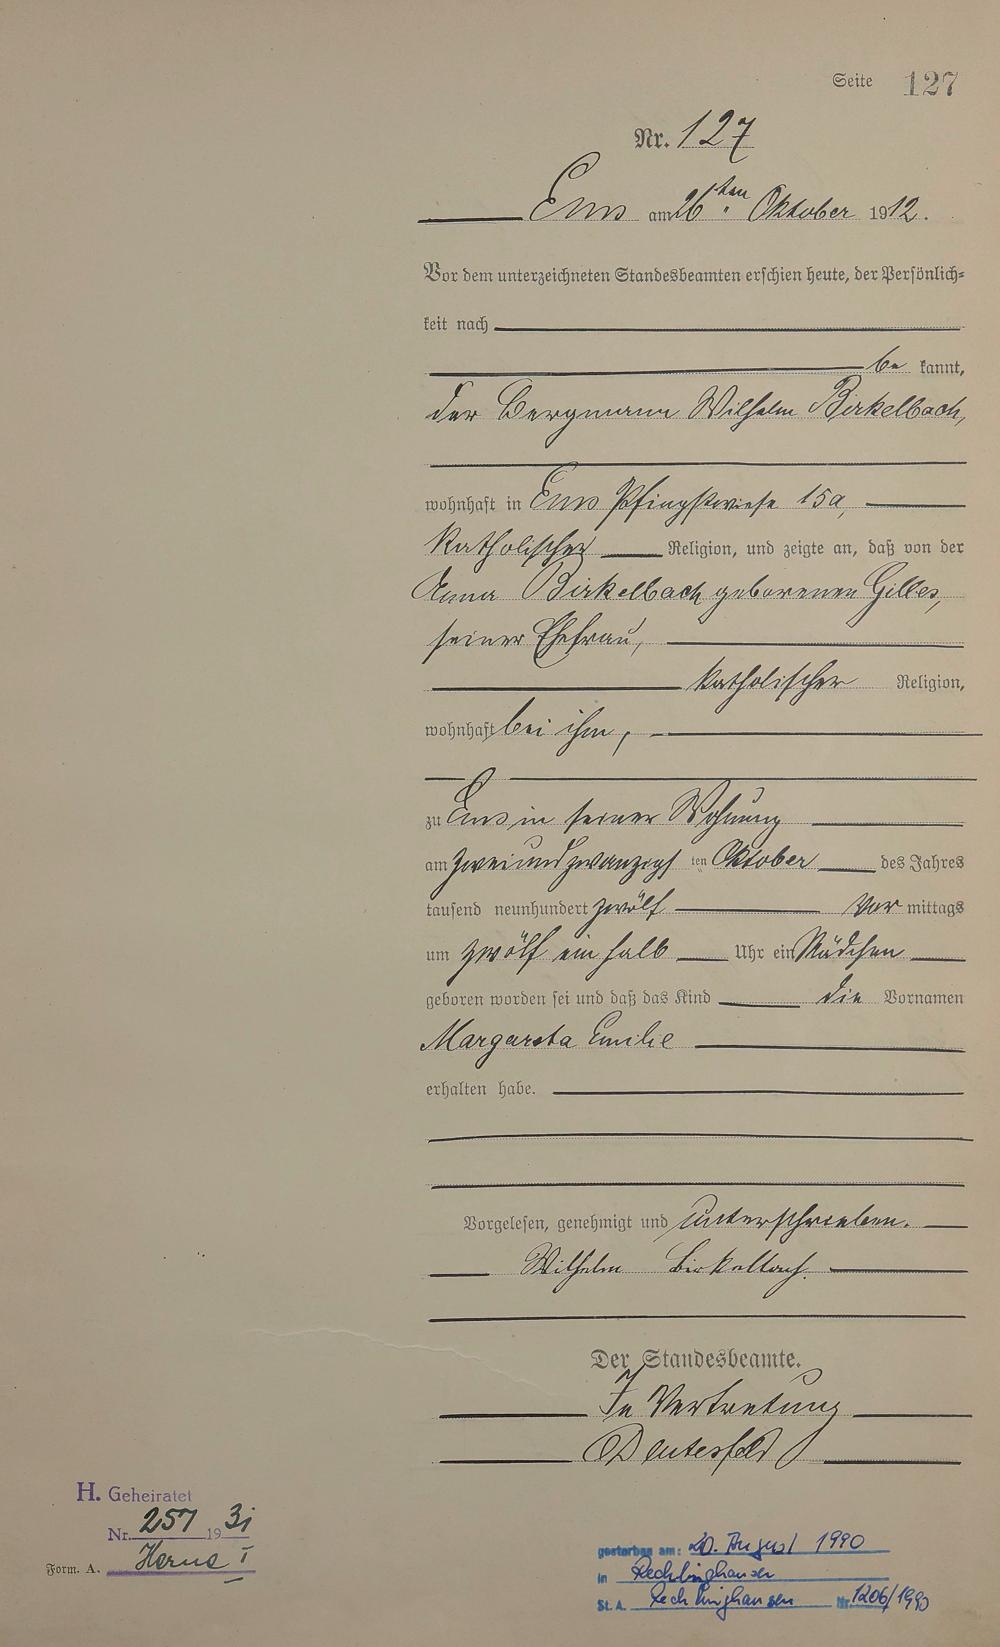 Seite 127
Nr. 127
Ems am 26ten Oktober 1912.
Vor dem unterzeichneten Standesbeamten erschien heute, der Persönlich-
keit nach
be kannt,
der Bergmann Wilhelm Birkelbach,
wohnhaft in Ems Pfingstwiese 15a,
katholischer Religion, und zeigte an, daß von der
Anna Birkelbach geborenen Gilles,
seiner Ehefrau,
katholischer Religion,
wohnhaft bei ihm,
zu Ems in seiner Wohnung
am zweiundzwanzigsten Oktober des Jahres
tausend neunhundert zwölf Vor mittags
um zwölf ein halb Uhr ein Mädchen
geboren worden sei und daß das Kind die Vornamen
Margareta Emilie
erhalten habe.
Vorgelesen, genehmigt und unterschrieben.
Wilhelm Birkelbach.
Der Standesbeamte.
In Vertretung
H. Geheiratet
Nr. 257 1931
Form. A. Herne I
gestorben am: 20. August 1990
in Recklinghausen
St. A. Recklinghausen Nr. 1206/1990